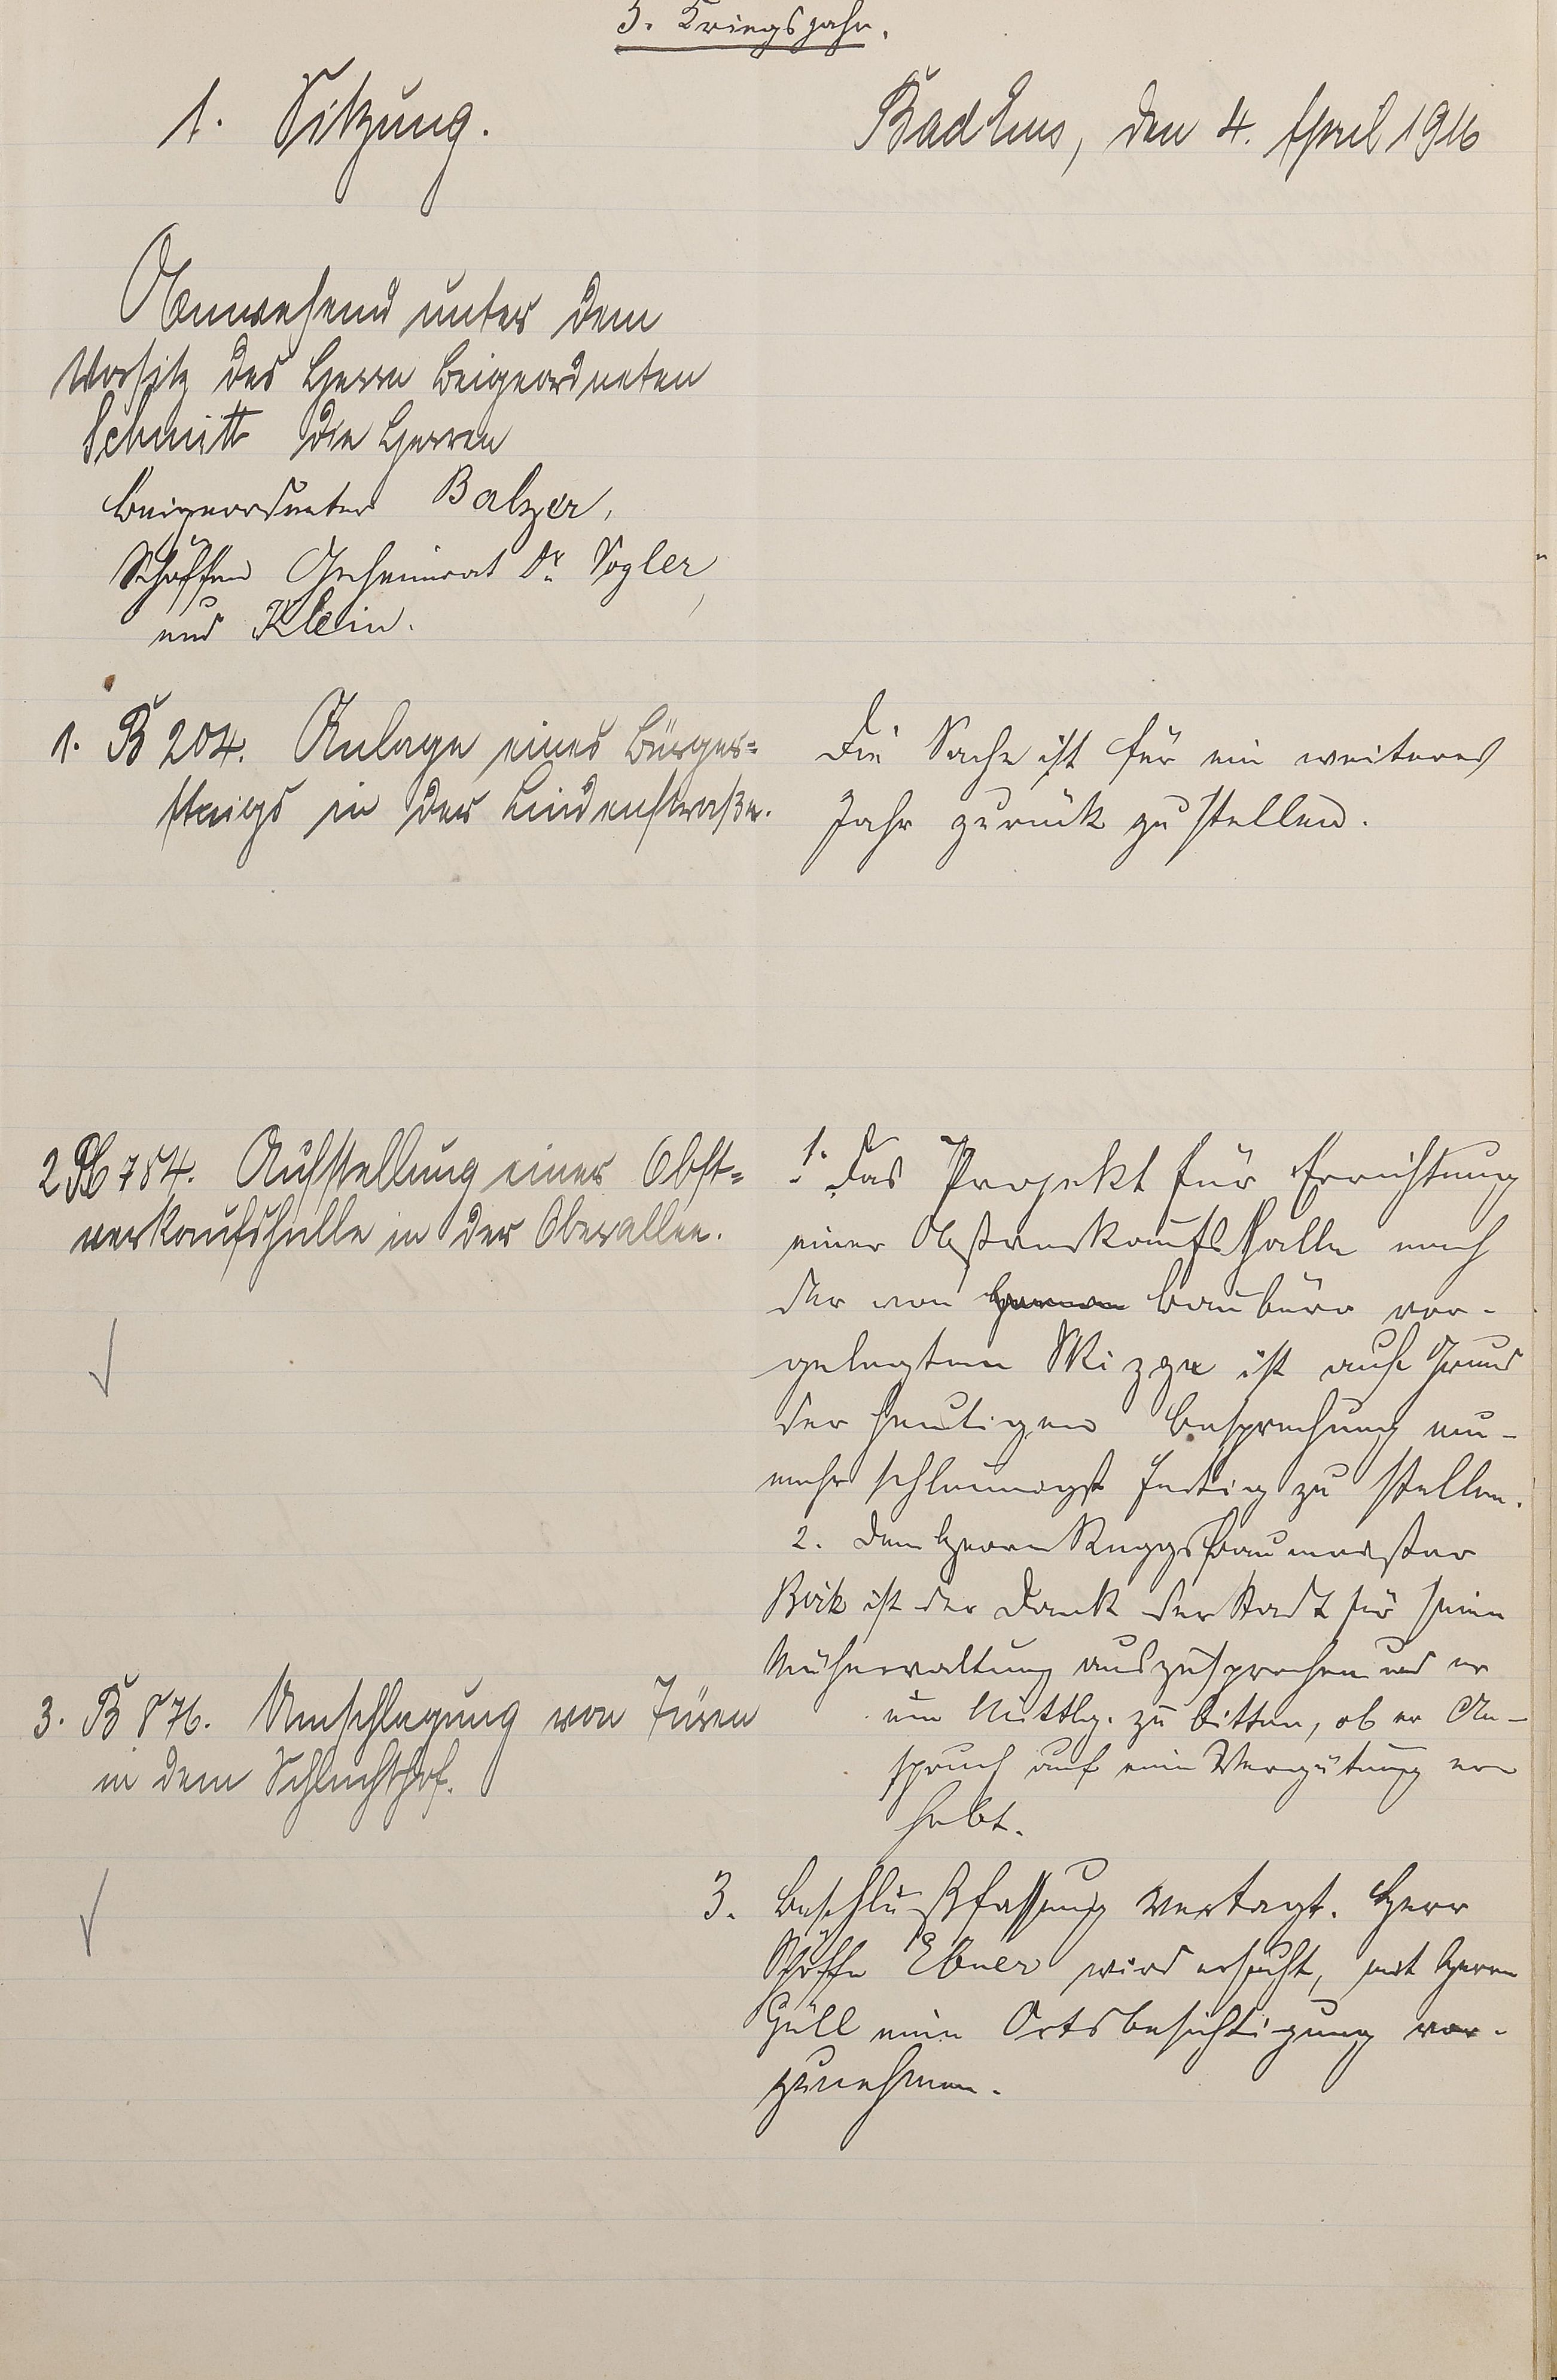 3. Kriegsjahr.
1. Sitzung.
Bad Ems, den 4. April 1916
Anwesend unter dem
Vorsitz des Herrn Beigeordneten
Schmitt die Herren
Beigeordneter Balzer,
Schöffen Geheimrat Dr. Vogler,
und Klein.
1. B 204. Anlage eines Bürger-
steigs in der Lindenstraße.
Die Sache ist für ein weiteres
Jahr zurück zu stellen.
2 B 784. Aufstellung einer Obst-
verkaufshalle in der Oberallee.
1. Das Projekt für Errichtung
einer Obstverkaufshalle nach
der von Herrn Baubüro vor-
gelegten Skizze ist auf Grund
der heutigen Besprechung nun-
mehr schleunigst fertig zu stellen.
2. Dem Herrn Reggsbaumeister
ist der Dank der Stadt für seine
Mühewaltung auszusprechen und er
um Mittlg. zu bitten, ob er An-
spruch auf eine Vergütung er-
hebt.
3. B 876. Umschlagung von Türen
in dem Schlachthof.
3. Beschlußfassung vertagt. Herr
Schöffe Ebner wird ersucht, mit Herrn
Güll eine Ortsbesichtigung vor-
zunehmen.